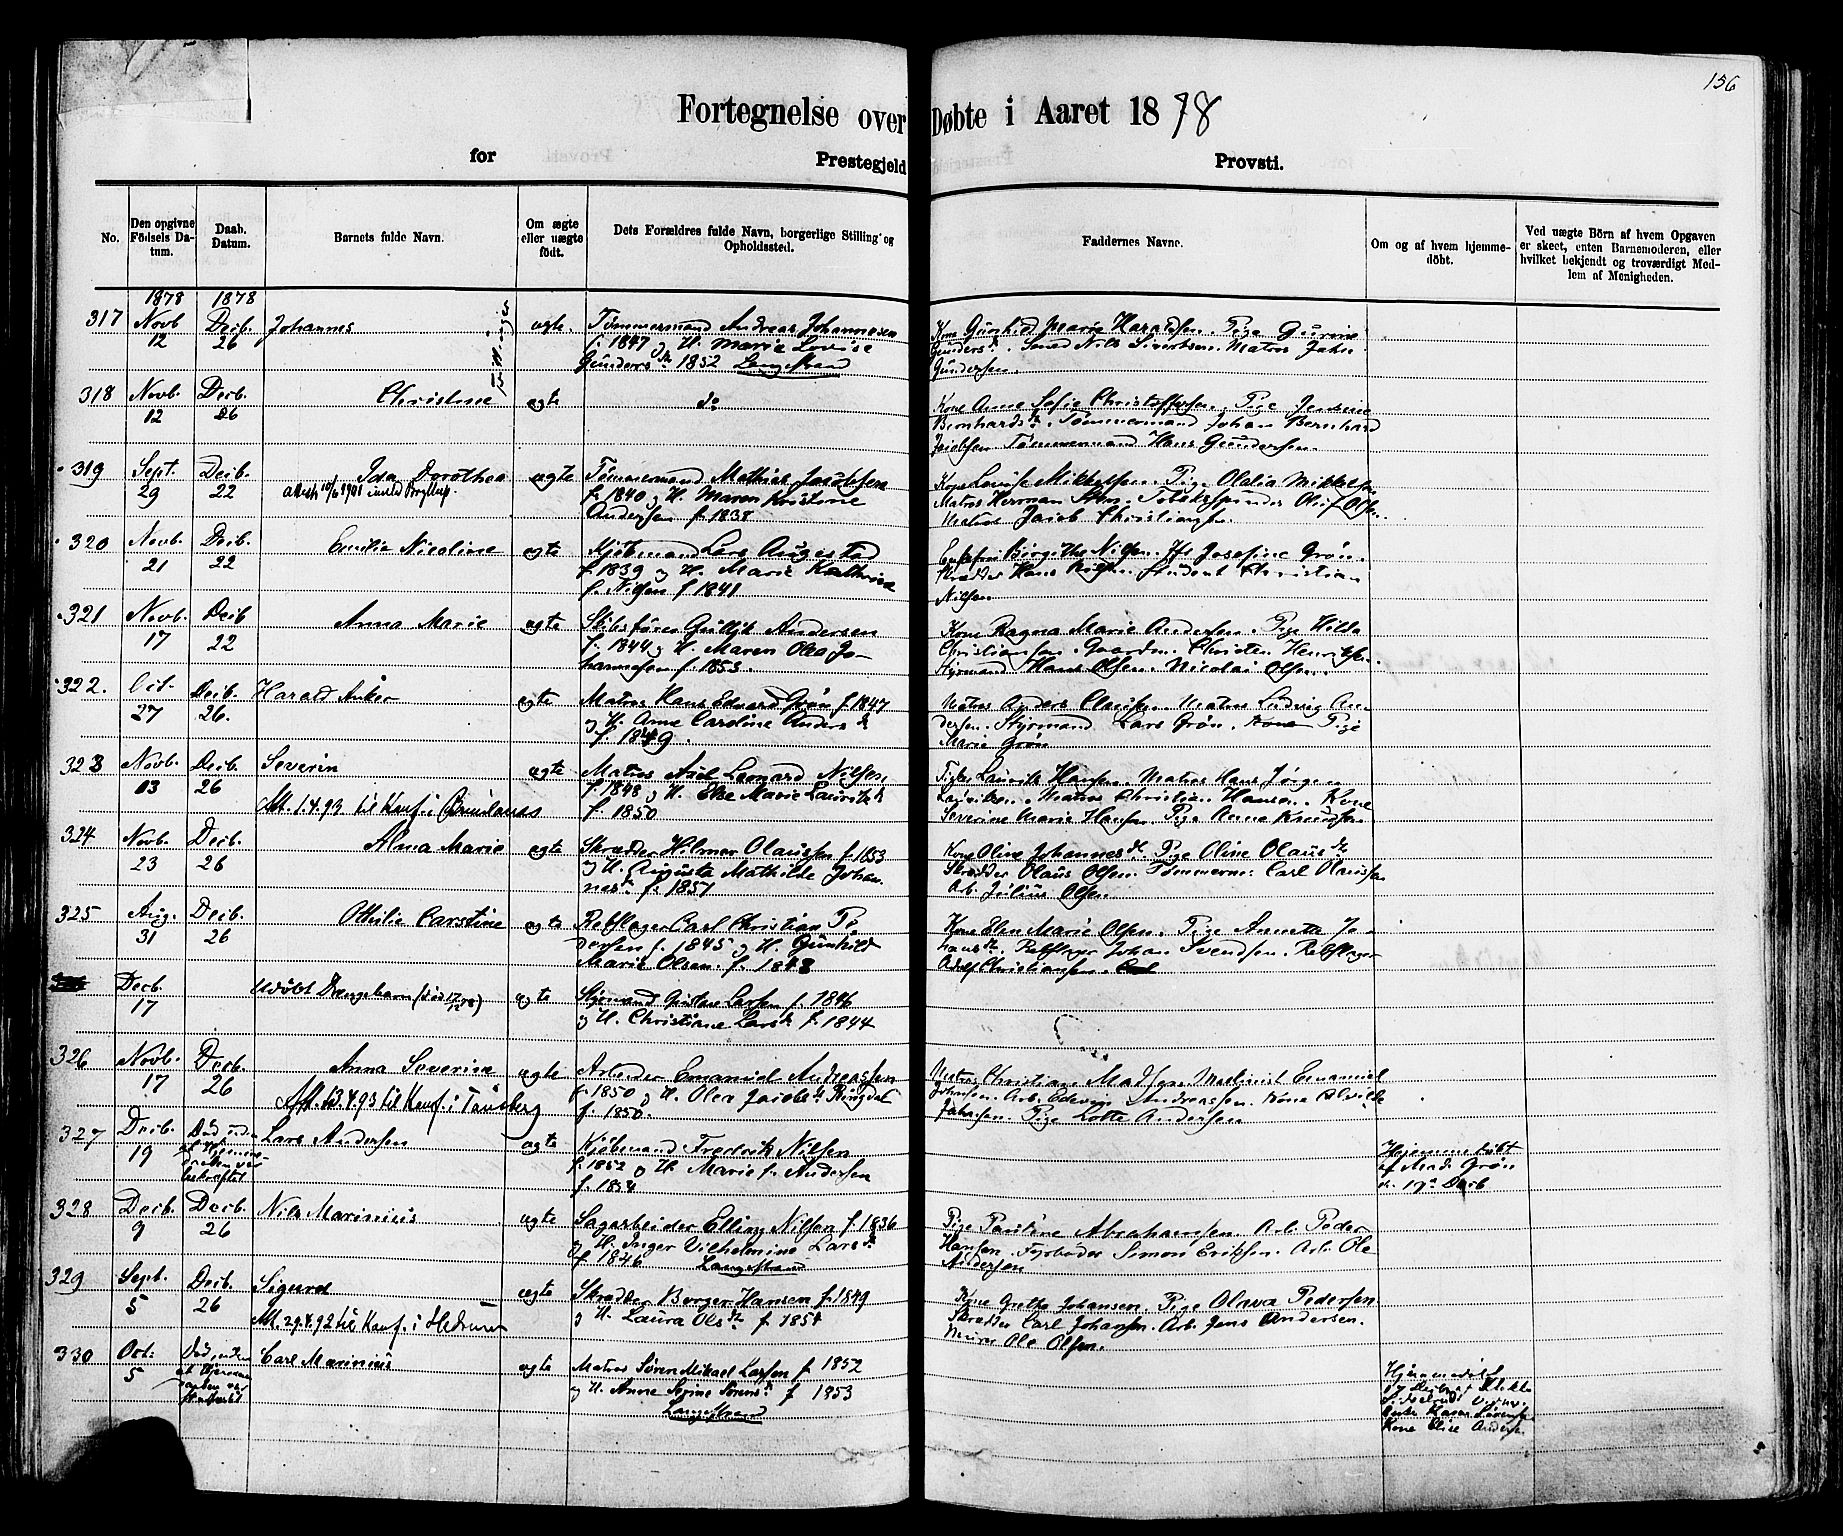 156
Fortegnelse over Døbte i Aaret 1878
for Prestegjeld Provsti.
No.
Den opgivne Födsels Datum.
Daab. Datum.
Barnets fulde Navn.
Om ægte eller uægte födt.
Dets Forældres fulde Navn, borgerlige Stilling og Opholdssted.
Faddernes Navne.
Om og af hvem hjemmedöbt.
Ved uægte Börn af hvem Opgaven er skeet, enten Barnemoderen, eller hvilket bekjendt og troværdigt Medlem af Menigheden.
1878 1878
317 Novb 12 Decb. 26 Johannes ægte.
Tømmermand Andreas Johannesen
f. 1847 og H. Marie Lovise
Gunders dr 1852 Langestrand
Kone Gunhild Marie Haraldsen. Pige Gurine
Gundersdr. Smed Nils Sivertsen. Matros Johan
Gundersen.
Tvillinger
318 Novb. 12 Decb. 26 Christine ægte
do
Kone Anne Sofie Christoffersen. Pige Jensine
Bernhardsdr. Tømmermand Johan Bernhard
Jacobsen Tømmermand Hans Gundersen.
319 Sept. 29 Decb. 22 Ida Dorothea ægte
Attest 10/6 1901 Bryllup.
Tømmermand Mathias Jacobsen
f. 1840 og H. Maren Kristine
Andersen f. 1838.
Kone Louise Mikkelsen. Pige Olelia Mikkelsen
Matros Herman Tobakspinder Oluf Olsen.
Matros Jacob Christiansen.
320 Novb. 21 Decb. 22 Emilie Nicoline ægte
Kjøbmand Lars Augestad
f. 1839 og H. Marie Kathrine
f. Nilsen f 1841
Enkefru Birgithe Nilsen. Josefine Grøn.
Skrædder Hans Nilsen. Student Christian
Nilsen
321 Novb. 17 Decb 22 Anna Marie ægte
Skibsfører Gullik Andersen
f. 1844 og H. Maren Olea Jo-
hannesen f. 1853.
Kone Ragna Marie Andersen. Pige Hilda
Christiansen. Gaardm. Christen Henriksen.
Styrmand Hans Olsen. Nicolai Olsen.
322. Oct. 27 Decb. 26. Harald Anker ægte
Matros Hans Edvard Grøn f. 1847
og H. Anne Caroline Anders dr
f. 1849.
Matros Anders Clausen. Matros Ludvig An-
dersen. Styrmand Lars Grøn. Kone Pige
Marie Grøn
323 Novb. 03 Decb. 26 Severin ægte
Att. 1.4.93 til Konf. i Brunlanes
Matros Axel Leonard Nilsen
f. 1848 og H. Else Marie Lauritz dr
f. 1850
Pige Lauritz Hansen. Matros Hans Jørgen
Lauritzen. Matros Christian Hansen. Kone
Severine Marie Hansen. Pige Anna Knudsen
324 Novb. 23 Decb. 26 Alma Marie ægte
Skrædder Hilmar Olaussen f. 1853
og H. Augusta Mathilde Johan
nesdr f. 1851
Kone Oline Johannesdr. Pige Oline Olausdr
Skrædder Olaus Olsen. Tømmerm: Carl Olaussen
Arb. Julius Olsen.
325 Aug. 31 Decb. 26 Othilie Carstine ægte
Rebslager Carl Christian Pe
dersen f. 1845 og H. Gunhild
Marie Olsen. f. 1848
Kone Elen Marie Olsen. Pige Annette Jo-
hansdr. Rebslager Johan Svendsen. Rebslager
Adolf Christiansen.
Decb. 17 Udøbt Drengebarn (død 17/12 78) ægte
Styrmand Gustav Larsen f. 1846
og H. Christiane Larsdr f. 1844
326 Novb. 17 Decb. 26 Anna Severine ægte
Att. 13.4.93 til Konf. i Tønsberg
Arbeider Emanuel Andreassen
f. 1850 og H. Olea Jacobsdr Ringdal
f. 1850.
Matros Christian Madsen. Maskinist Emanuel
Johansen. Arb. Edevin Andreassen. Kone Alvilde
Johansen. Pige Lotte Andersen
327 Decb. 19 Død uden at Hjemme-
daaben var
bekræftet Lars Andersen ægte
Kjøbmand Fredrik Nilsen
f. 1852 og H. Marie f. Andersen
f. 1854
Hjemmedøbt
af Mad. Grøn
d. 19de Decb
328 Decb. 9 Decb. 26 Nils Marinius ægte
Sagarbeider Elling Nilsen f. 1836
og H. Inger Vilhelmine Larsdr
f 1846 Langestrand
Pige Pauline Abrahamsen. Arb. Peder
Hansen. Fyrbøder Simon Eriksen. Arb. Ole
Andersen
329 Sept. 5 Decb. 26 Sigurd ægte
Att. 29.4.92 til Konf. i Hedrum
Skrædder Borger Hansen f. 1849
og H. Laura Olsdr f. 1854
Kone Grethe Johansen. Pige Olava Pedersen.
Skrædder Carl Johansen. Arb. Jens Andersen.
Murer Ole Olsen.
330 Oct: 5 Død, uden
at Hjemme
daaben var
stadfæstet Carl Marinius ægte
Matros Søren Mikael Larsen f. 1852
og H. Anne Sofine Sørensdr f 1853
Langestrand
Hjemmedøbt
Kone Elise Andersen